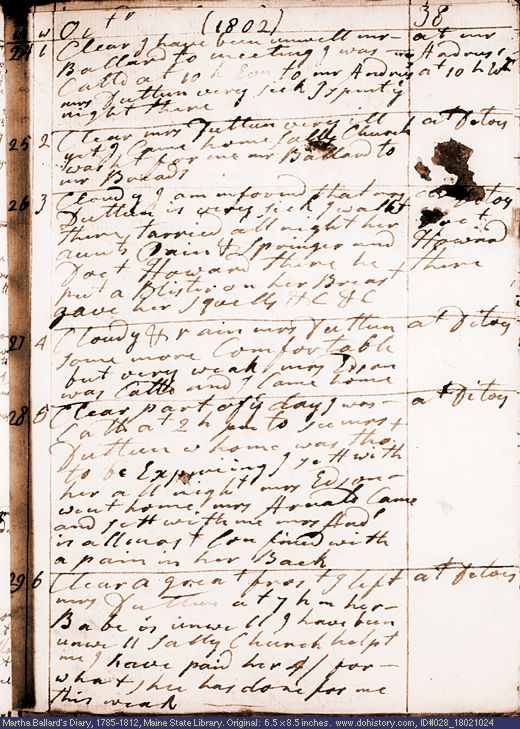 Oct (1802) 38
24 1 Clear I have been unwell mr at mr
Ballard to meeting I was Andrus
Calld at 10 h Evn to mr Andrus at 10 h
mrs Dutten very sick I spent ye
night there
25 2 Clear mrs Dutten very ill at ditoes
yet I came home Sally Church
washt for me mr Ballard to
mr Breads
26 3 Cloudy I am informd that mrs
Dutten is very sick I was
there tarried all night her Howard
aunts Dain & Springer and there
Doct Howard there he
put a Blister on her Breast
gave her squills &C &C
27 4 Cloudy & rain mrs Dutten at ditoes
some more Comfortable
but very weak mrs Edson
was Calld and I came home
28 5 Clear part of ye day I was at ditoes
Calld at 2 h pm to see mrs
Dutten w home was tho
to be Expireing I sett with
her all night mrs Edson
went home mrs Arnald Came
and sett with me mrs And
is allmost Confined with
a pain in her Back
29 6 Clear a great frost I left at ditoes
mrs Dutten at 7 h m her
Babe is unwell I have been
unwell Sally Church helpt
me I have paid her 4/ for
what shee has done for me
this weak
Martha Ballard's Diary, 1785-1812, Maine State Library. Original: 6.5 x 8.5 inches. www.dohistory.com, ID#028_18021024